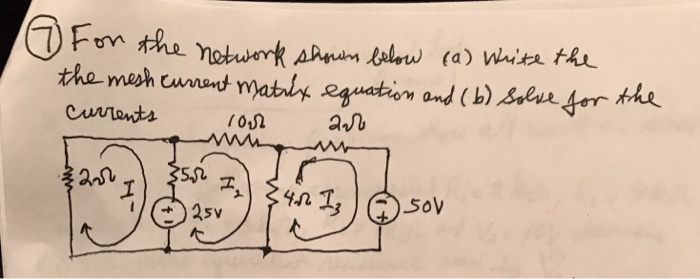 7 For the network shown below (a) Write the
the mesh current matrix equation and (b) Solve for the
currents
10Ω 2Ω
2Ω I1 5Ω I2 4Ω I3 50V
+ 25V - +